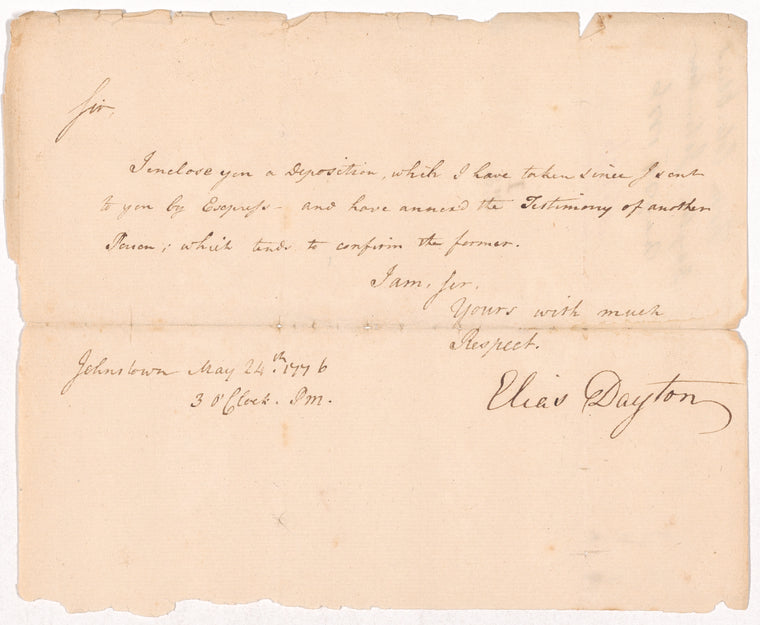 Sir,
I enclose you a Deposition, which I have taken since I sent
to you by Express – and have annexd the Testimony of another
Person; which tends to confirm the former.
I am, Sir,
Yours with much
Respect.
Johnstown May 24th. 1776
3 o'Clock. Pm.
Elias Dayton